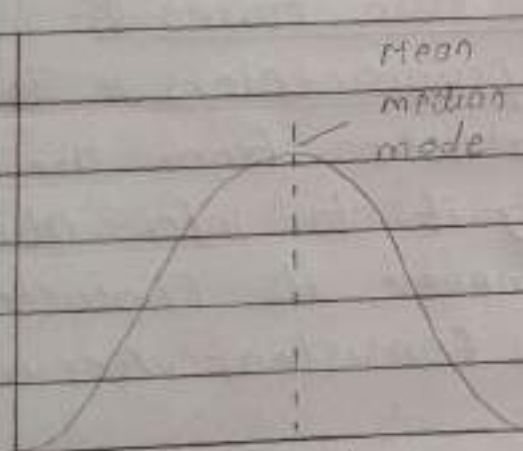 Mean
median
mode